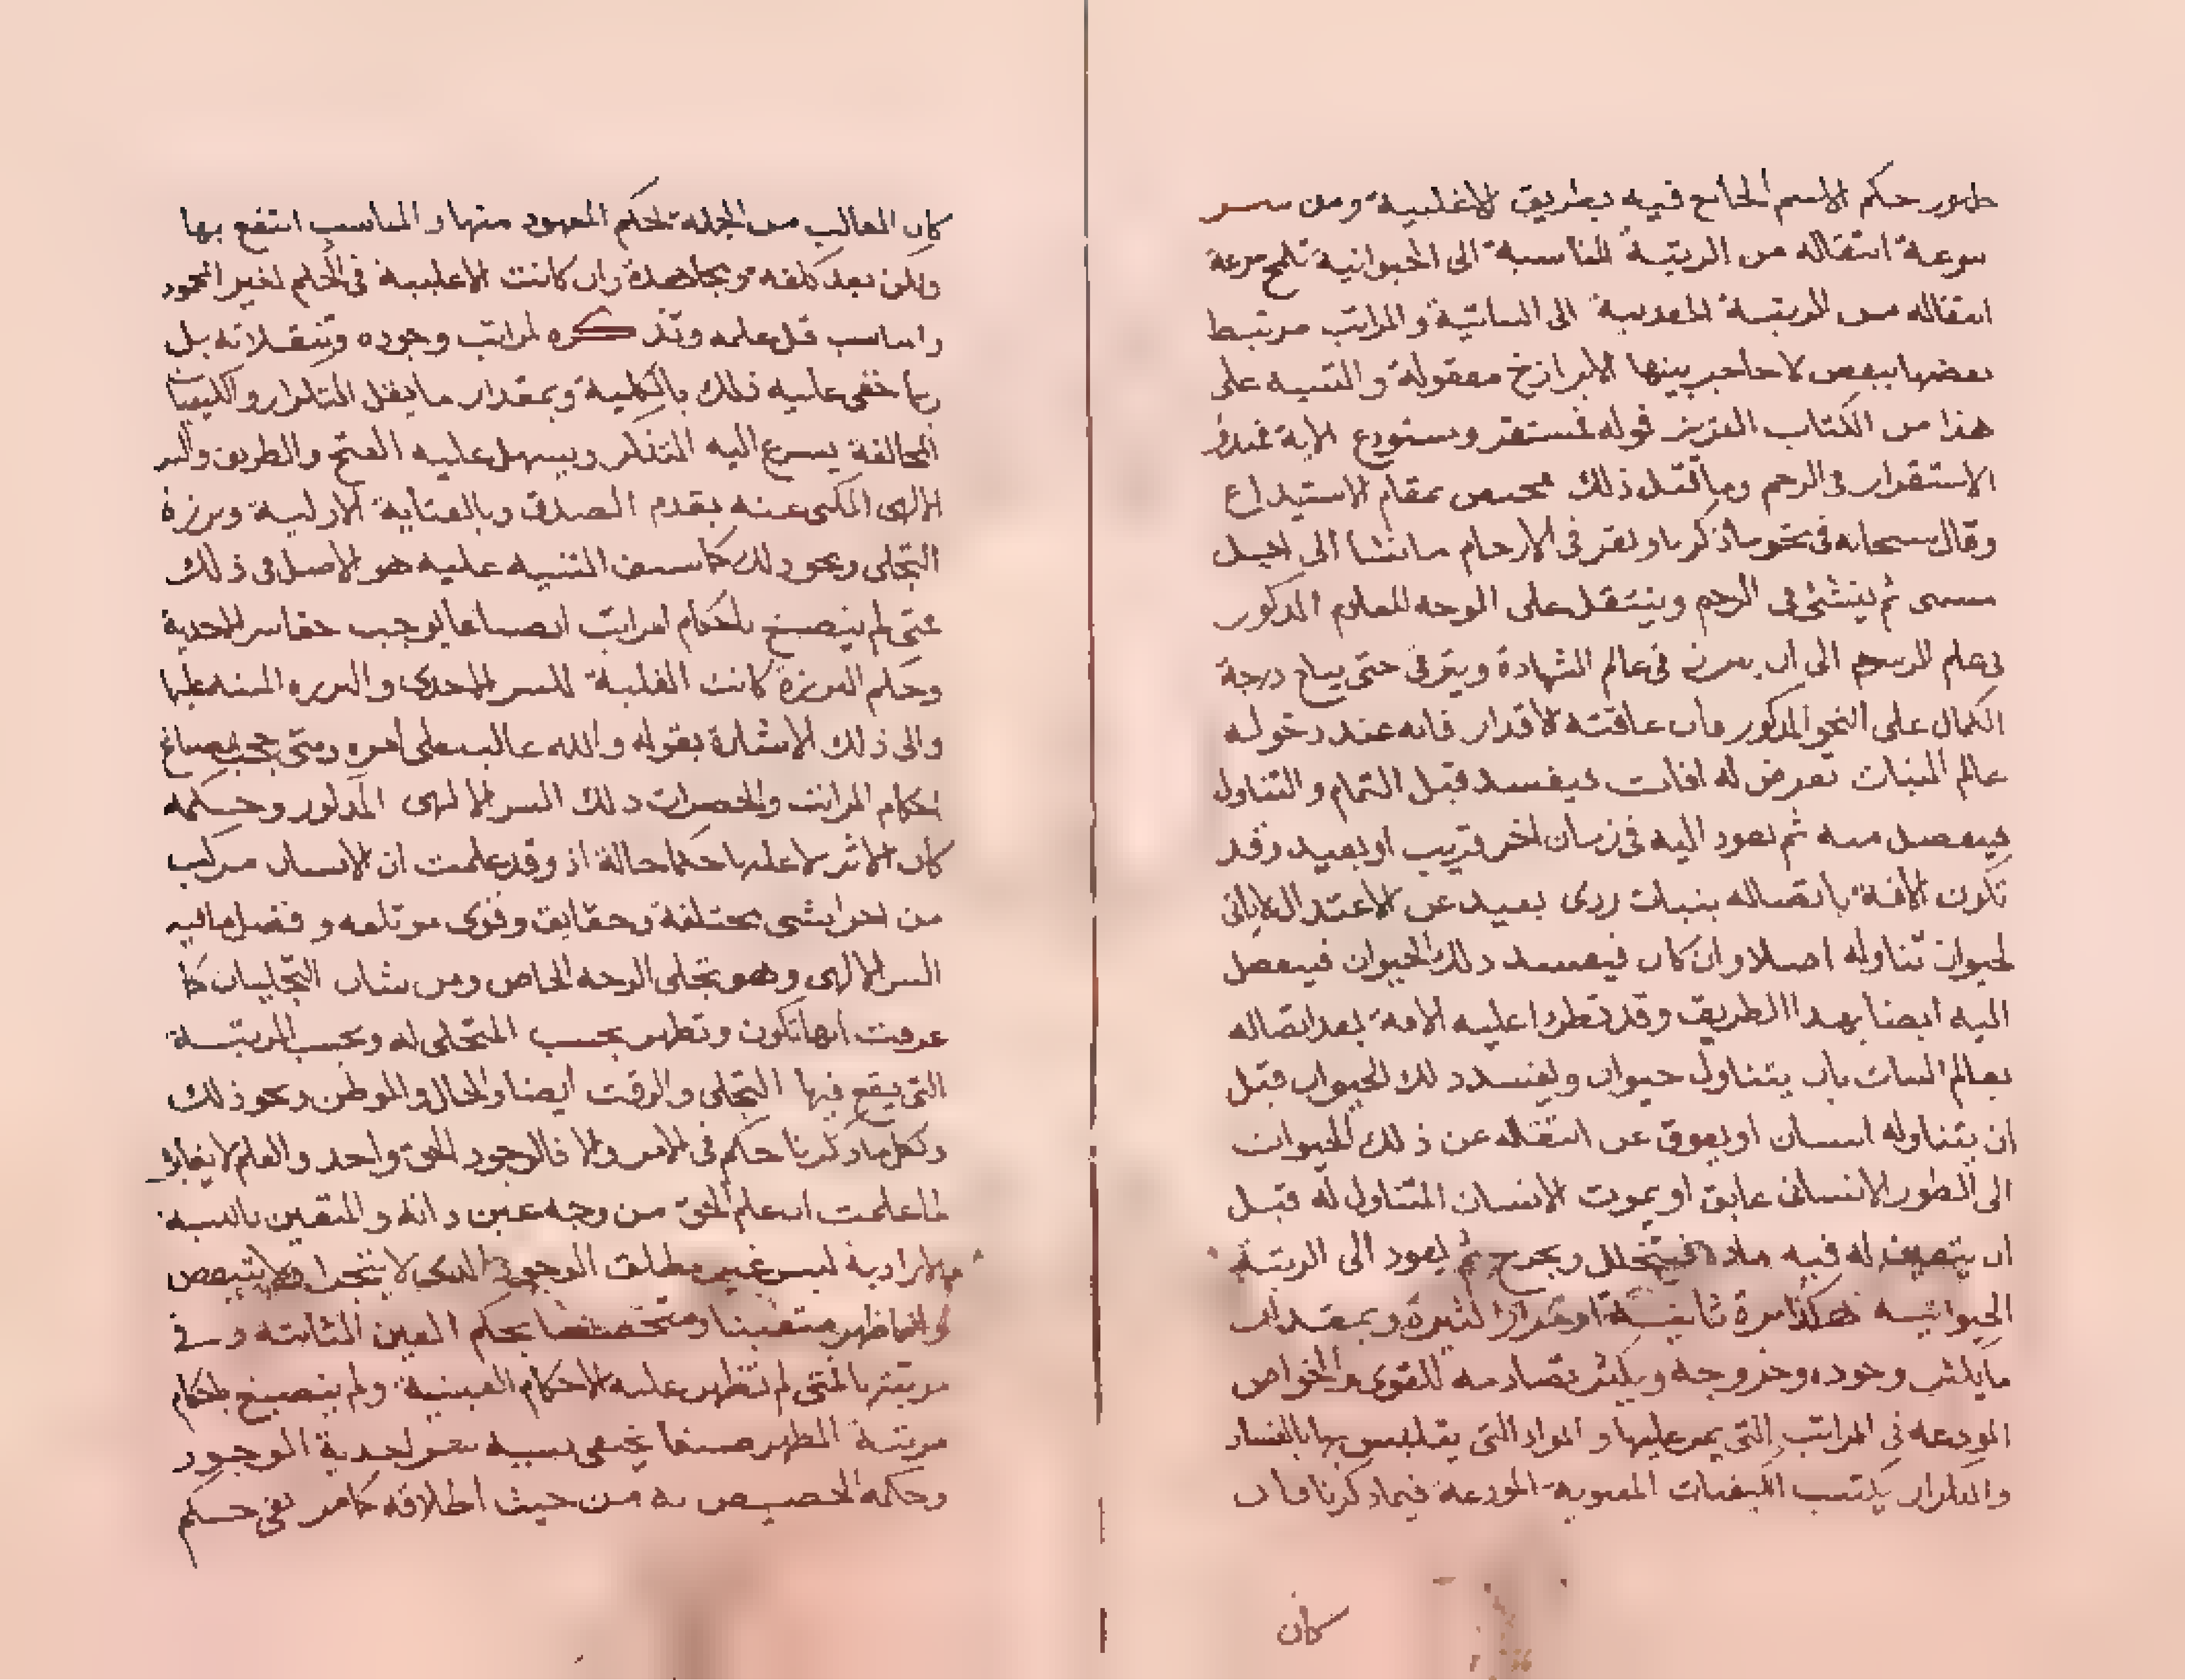 ظهور حكم الاسم الجامع فيه بطريق الاغلبية ومن
سرعة انتقاله من الرتبة المناسبة الى الحيوانية تلمح سرعة
انتقاله من الرتبة المعدنية الى النباتية والمراتب مرتبط
بعضها ببعض لا حاجز بينها الا برازخ معقولة والتنبيه على
هذا من الكتاب العزيز قوله فمستقر ومستودع الاية
الاستقرار فى الرحم وما قبل ذلك مختص بمقام الاستيداع
وقال سبحانه فى نحو ما ذكرنا ونقر فى الارحام ما نشا الى اجل
مسمى ثم ينشئ فى الرحم وينتقل على الوجه المعلوم المذكور
فى علم الى ان يبرز فى عالم الشهادة ويترقى حتى يبلغ درجة
الكمال على النحو المذكور فان عاقته الاقدار فانه عند دخوله
عالم النبات تعرض له افات فيفسد قبل التمام والتناول
فينفصل منه ثم يعود اليه فى زمان اخر قريب او بعيد وقد
تكون الافة باتصاله بنبات ردى بعيد عن الاعتدال لا ياتى
لحيوان تناوله اصلا وان كان فيفسد ذلك الحيوان فينفصل
اليه ايضا بهذا الطريق وقد تطرا عليه الافة بعد اتصاله
بعالم النبات بان يتناوله حيوان ويفسد ذلك الحيوان قبل
ان يتناوله انسان او يعوق عن انتقاله عن ذلك الحيوان
الى الطور الانسانى عايق او يموت الانسان المتناول له قبل
ان يتعين له فيه مادة فيتحلل ويخرج ثم يعود الى الرتبة
الحيوانية هكذا مرة ثانية او مرارا كثيرة وبمقدار
ما يكثر وجوده وخروجه ويكثر تصادمه للقوى والخواص
المودعه فى المراتب التى يمر عليها والمواد التى يتلبس بها بالفساد
والتكرار يكتسب الكيفيات المعنوية المودعة فيما ذكرنا فان
كان
كان الغالب من الجملة الحكم المحمود منها والمناسب انتفع بها
ولكن بعد كلفه ومجاهدة وان كانت الاغلبية فى الحكم لغير المحمود
والمناسب قل علمه وتذكره لمراتب وجوده وتنقلاته بل
ربما خفى عليه ذلك بالكلية وبمقدار ما يقل التكرار والكيفيات
المخالفة يسرع اليه التذكر ويسهل عليه الفتح والطريق والسر
الالهى المكنى عنه بقدم الصدق وبالعناية الازلية وبرزة
التجلى ونحو ذلك كما سبق التنبيه عليه هو الاصل فى ذلك
فمتى لم ينصبغ باحكام المراتب انصباغا يوجب خفا سر الاحدية
وحكم البرزة كانت الغلبة للسر الاحدى والبرزه المنبه عليها
والى ذلك الاشارة بقوله والله غالب على امره ومتى حجب انصباغ
احكام المراتب والحضرات ذلك السر الالهى المذكور وحكمه
كان الاثر لاغلبها حكما حالة اذ وقد علمت ان الانسان مركب
من اجزا شتى مختلفة وحقايق وقوى موتلفه وفضل ما فيه
السر الالهى وهو تجلى الوجه الخاص ومن شان التجليات كما
عرفت انها تكون وتظهر بحسب المتجلى له وبحسب المرتبة
التى يقع فيها التجلى والوقت ايضا والحال والموطن ونحو ذلك
ولكل ما ذكرنا حكم فى الامر والا فالوجود الحق واحد والعلم لا يغاير
لما علمت ان علم الحق من وجه عين ذاته والمتعين بالنسبه
الارادية ليس غير مطلق الوجود الذى لا يتجزا ولا يتبعض
وانما ظهر متعينا ومتخصصا بحكم العين الثابته وفى
مرتبتها فمتى لم تظهر عليه الاحكام العينية ولم ينصبغ باحكام
مرتبة المظهر صبغا يخفى بسببه احدية الوجود
وحكمه الخصيص به من حيث اطلاقه كما مر بقى حكم